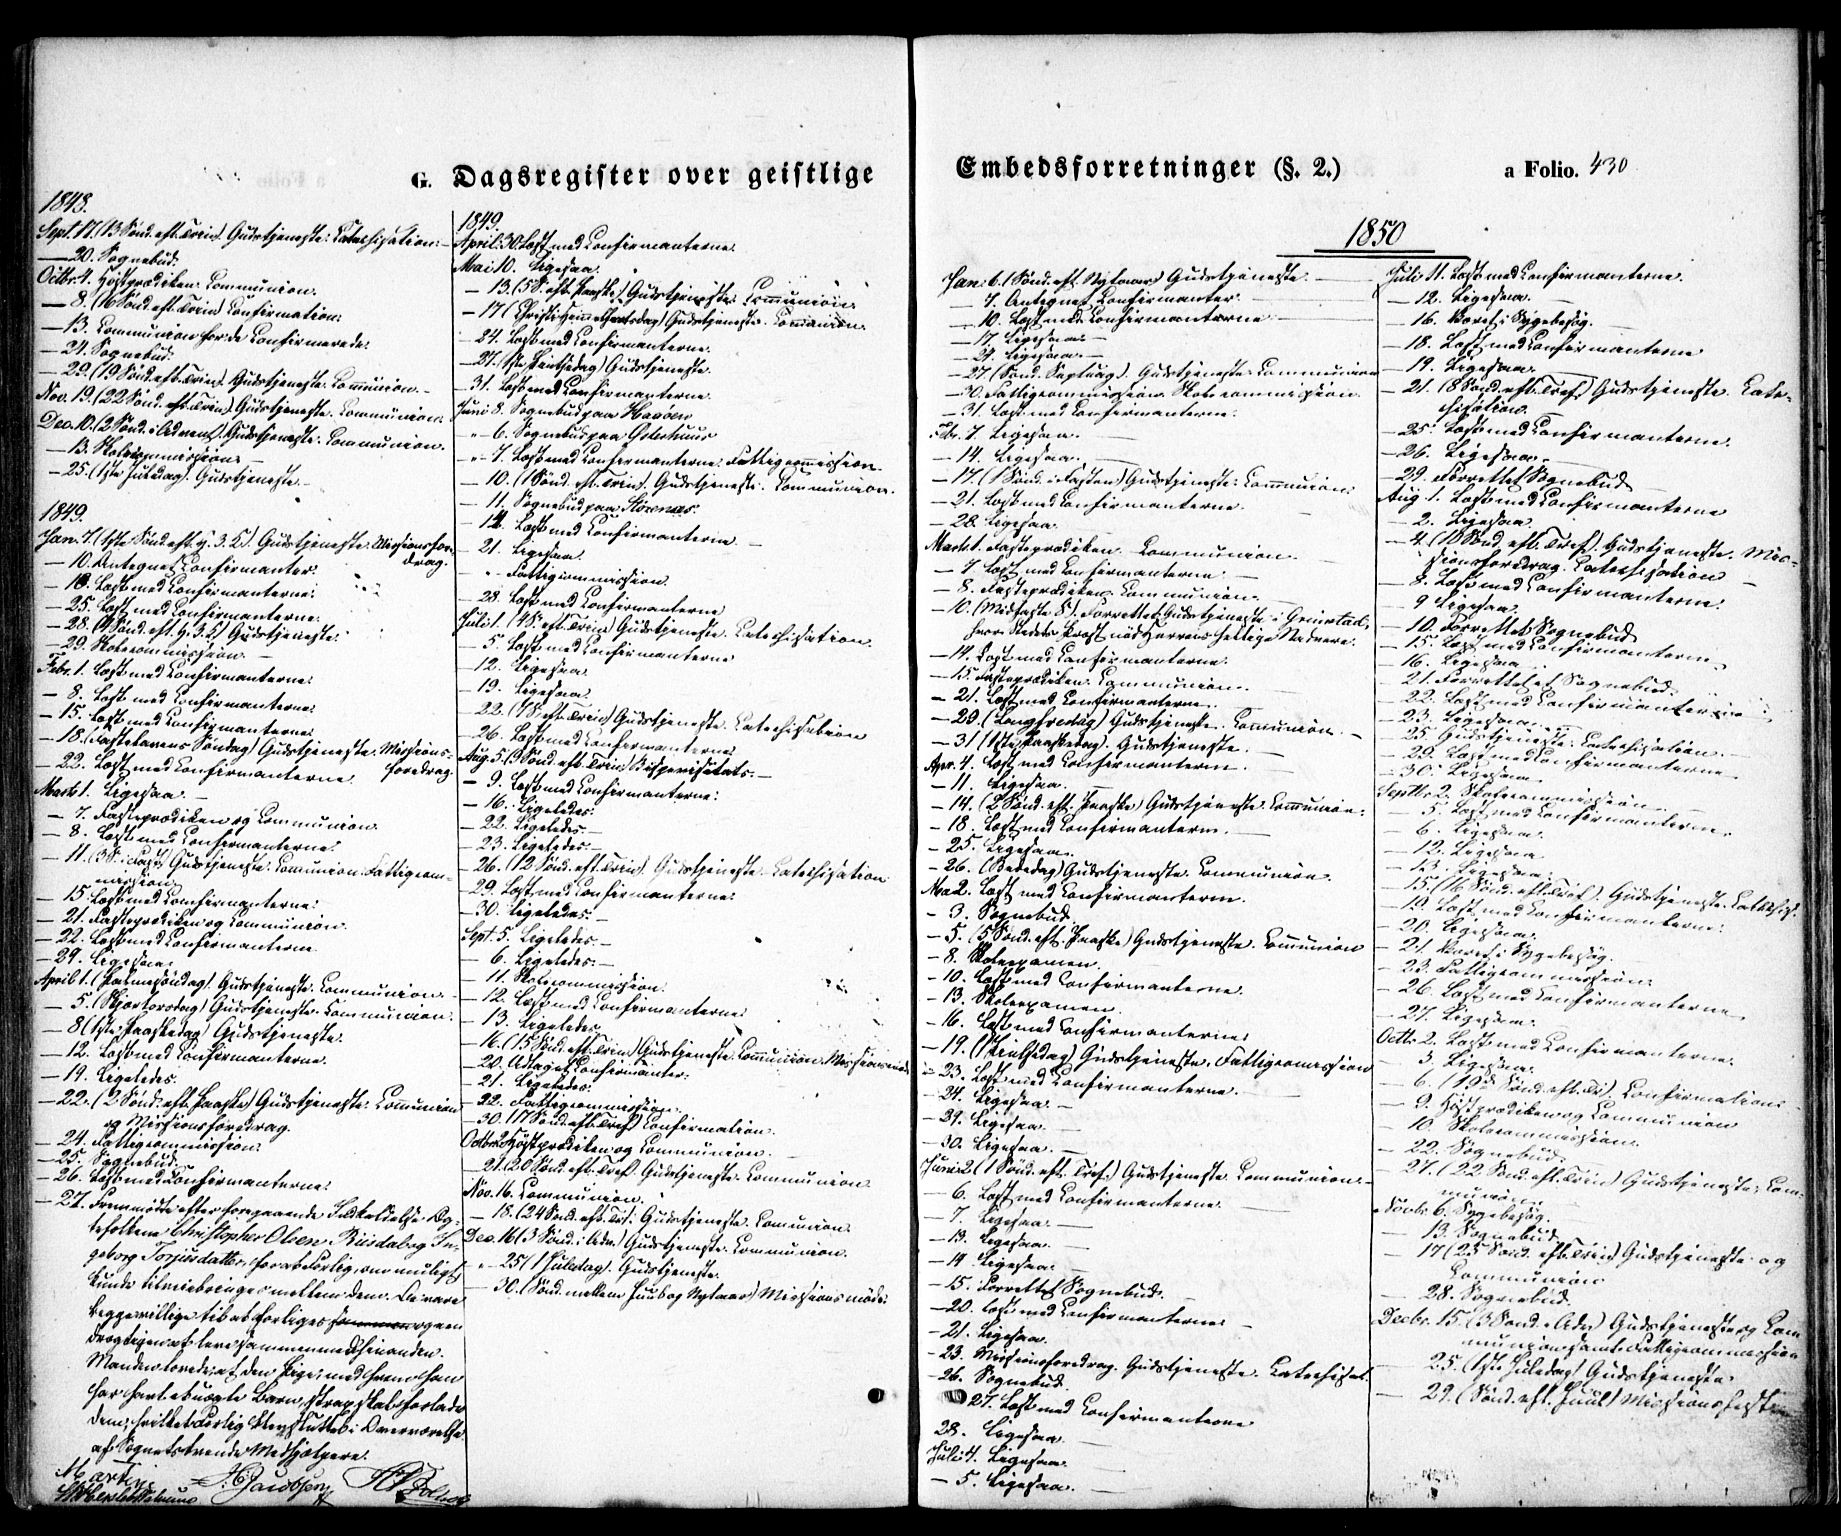 G. Dagsregister over geistlige
Embedsforretninger (§. 2.)
a Folio. 430
1848.
Sept. 17. (13 Sønd. eft. Trin) Gudstjeneste. Catechisation.
— 20. Sognebud.
Octbr. 4. Høstprædiken. Communion.
— 8. (16 Sønd. eft. Trin) Confirmation.
— 13. Communion for de Confirmerede.
— 24. Sognebud.
— 29. (19 Sønd. eft. Trin) Gudstjeneste. Communion.
Nov. 19. (22 Sønd. eft. Trin) Gudstjeneste. Communion.
Dec. 10. (2 Sønd. i Advent) Gudstjeneste. Communion.
— 13. Skolecommission.
— 25. (1ste Juledag). Gudstjeneste.
1849.
Jan. 7. (1ste Sønd. eft. H. 3. K.) Gudstjeneste. Missionsfor-
drag.
— 10. Antegnet Confirmanter.
— 18. Læst med Confirmanterne.
— 25. Læst med Confirmanterne.
— 28. (4 Sønd. eft. H. 3. K.) Gudstjeneste.
— 29. Skolecommission.
Febr. 1. Læst med Confirmanterne.
— 8. Læst med Confirmanterne.
— 15. Læst med Confirmanterne.
— 18. (Fastelavens Søndag) Gudstjeneste. Missions-
foredrag.
— 22. Læst med Confirmanterne.
Marts 1. Ligesaa.
— 7. Fasteprædiken og Communion.
— 8. Læst med Confirmanterne.
— 11. (3 S. i Faste) Gudstjeneste. Communion. Fattigcom-
mission.
— 15. Læst med Confirmanterne.
— 21. Fasteprædiken og Communion.
— 22. Læst med Confirmanterne
— 29. Ligesaa.
April 1. (Palmesøndag). Gudstjeneste. Communion.
— 5. (Skjærtorsdag) Gudstjeneste. Communion.
— 8 (1ste Paaskedag) Gudstjeneste.
— 12. Læst med Confirmanterne.
— 19. Ligeledes.
— 22. (2 Sønd. eft. Paaske) Gudstjeneste. Communion
og Missionsforedrag.
— 24. Fattigcommission.
— 25. Sognebud.
— 26. Læst med Confirmanterne.
— 27. Fremmødte efter foregaaende Indkaldelse Æg-
tefolkene Christopher Olsen Riisdal og In-
geborg Torjusdatter, for at Forlig, om muligt
kunde tilveiebringes mellem dem. De vare
begge villige til at forliges og een
drægtigen at leve sammen med hinanden.
Manden lovede, at den Pige, med hvem han
har havt et uægte Barn, strax skal forlade
dem; hvilket Forlig blev sluttet i Overværelse
af Sognets tvende Medhjælpere.
H. Jacobsen
1849.
April 30. Læst med Confirmanterne.
Mai 10. Ligesaa.
— 13. (5 S. eft. Paaske) Gudstjeneste. Communion.
— 17 (Christi Himmelfartsdag) Gudstjeneste. Communion.
— 24. Læst med Confirmanterne.
— 27. (1ste Pintsedag) Gudstjeneste.
— 31. Læst med Confirmanterne.
Juni 3. Sognebud paa
— 6. Sognebud paa
— 7. Læst med Confirmanterne. Fattigcommission.
— 10. (1 Sønd. eft. Trin). Gudstjeneste. Communion.
— 11. Sognebud paa
— 14. Læst med Confirmanterne
— 21. Ligesaa.
Fattigcommission.
— 28. Læst med Confirmanterne
Juli 1. (4 S. eft. Trin) Gudstjeneste. Catechisation.
— 5. Læst med Confirmanterne
— 12. Ligesaa.
— 19. Ligesaa.
— 22. (7 S. eft. Trin) Gudstjeneste. Catechisation
— 26. Læst med Confirmanterne.
Aug. 5. (9 Sønd. eft. Trin) Bispevisitats.
— 9. Læst med Confirmanterne.
— 16. Ligeledes.
— 22. Ligeledes.
— 23. Ligeledes.
— 26. (12 Sønd. eft. Trin). Gudstjeneste. Catechisation
— 29. Læst med Confirmanterne.
— 30. Ligeledes.
Sept. 5. Ligeledes.
— 6. Ligeledes.
— 11. Skolecommission.
— 12. Læst med Confirmanterne.
— 13. Ligeledes.
— 16. (15 Sønd. eft. Trin) Gudstjeneste. Communion. Missionsmøde
— 20. Confirmanter.
— 21. Ligeledes.
— 22. Fattigcommission.
— 30. (17 Sønd. eft. Tref) Confirmation.
Octbr. 2. Høstprædiken og Communion.
— 21. (20 Sønd. eft. Tref. Gudstjeneste. Communion.
Nov. 16. Communion.
— 18. (24 Sønd. eft. Tr.) Gudstjeneste. Communion.
Dec. 16 (3 Sønd. i Adv.) Gudstjeneste. Communion.
— 25. (1 Juledag). Gudstjeneste.
— 30. (Sønd. mellem Juul og Nytaar) Missionsmøde.
1850
Jan. 6. (Sønd. eft. Nytaar) Gudstjeneste.
— 7. Antegnet Confirmanter.
— 10. Læst med Confirmanterne
— 17. Ligesaa.
— 24. Ligesaa.
— 27 (Sønd. Septuag). Gudstjeneste. Communion
— 30. Fattigcommission. Skolecommission.
— 31. Læst med Confirmanterne.
Febr. 7. Ligesaa.
— 14. Ligesaa.
— 17. (1 Sønd. i Fasten) Gudstjeneste. Communion.
— 21. Læst med Confirmanterne.
— 28. Ligesaa.
Marts 1. Fasteprædiken. Communion.
— 7. Læst med Confirmanterne.
— 8. Fasteprædiken. Communion.
— 10. (Midfaste S.) Forrettet Gudstjeneste i Grimstad,
hvor Stedets Præst nød Herrens hellige Nadvere.
— 14. Læst med Confirmanterne.
— 15. Fasteprædiken. Communion.
— 21. Læst med Confirmanterne.
— 29. (Langfredag) Gudstjeneste. Communion.
— 31 (1ste Paaskedag). Gudstjeneste.
Apr. 4. Læst med Confirmanterne.
— 11. Ligesaa.
— 14. (2 Sønd. eft. Paaske) Gudstjeneste. Communion.
— 18. Læst med Confirmanterne.
— 25. Ligesaa.
— 26. (Bededag) Gudstjeneste. Communion.
Mai 2. Læst med Confirmanterne.
— 3. Sognebud.
— 5. (5 Sønd. eft. Paaske) Gudstjeneste. Communion
— 8. Skoleexamen.
— 10. Læst med Confirmanterne.
— 13. Skoleexamen.
— 16. Læst med Confirmanterne.
— 19. (1 Pintsedag) Gudstjeneste. Fattigcommission
— 23. Læst med Confirmanterne.
— 24. Ligesaa.
— 29. Ligesaa.
— 30. Ligesaa.
Juni 2 (1 Sønd. eft. Tref.) Gudstjeneste. Communion.
— 6. Læst med Confirmanterne.
— 7. Ligesaa.
— 13. Ligesaa.
— 14 Ligesaa.
— 15. Forrettet Sognebud.
— 20. Læst med Confirmanterne.
— 21. Ligesaa.
— 23. Missionsforedrag. Gudstjeneste. Catechisat.
— 26. Sognebud.
— 27. Læst med Confirmanterne
— 28. Ligesaa.
Juli 4. Ligesaa.
— 5. Ligesaa.
Juli 11. Læst med Confirmanterne.
— 12. Ligesaa.
— 16. Været i Sygebesøg.
— 18. Læst med Confirmanterne
— 19. Ligesaa.
— 21. (8 Sønd. eft. Tref.) Gudstjeneste. Cate-
chisation.
— 25. Læst med Confirmanterne.
— 26. Ligesaa.
— 29. Forrettet Sognebud
Aug. 1. Læst med Confirmanterne
— 2. Ligesaa.
— 4. (10 Sønd. eft. Tref). Gudstjeneste. Mis-
sionsforedrag. Catechisation
— 8. Læst med Confirmanterne.
— 9 Ligesaa.
— 10. Forrettet Sognebud
— 15. Læst med Confirmanterne
— 16. Ligesaa.
— 21. Forrettet et Sognebud.
— 22. Læst med Confirmanterne
— 23. Ligesaa.
— 25. Gudstjeneste. Catechisation.
— 29. Læst med Confirmanterne
— 30. Ligesaa.
Septbr. 2. Skolecommission.
— 5. Læst med Confirmanterne.
— 6. Ligesaa.
— 12. Ligesaa
— 13. Ligesaa.
— 15. (16 Sønd. eft. Tref.) Gudstjeneste. Catechis.
— 19. Læst med Confirmanterne.
— 20. Ligesaa.
— 21 Været i Sygebesøg.
— 23. Fattigcommission.
— 26. Læst med Confirmanterne
— 27. Ligesaa.
Octbr. 2. Læst med Confirmanterne.
— 3. Ligesaa.
— 6. (19de Sønd. eft. Tr.) Confirmation.
— 9. Høstprædiken og Communion
— 10. Skolecommission.
— 22. Sognebud.
— 27. (22 Sønd. eft. Trin) Gudstjeneste. Com-
munion.
Novbr. 6. Sygebesøg.
13. Sognebud.
— 17 (25 Sønd. eft. Trin) Gudstjeneste og
Communion
— 28. Sognebud.
Decbr. 15. (3 Sønd. i Adv) Gudstjeneste og Com
munion samt Fattigcommission
— 25. (1ste Juledag) Gudstjeneste.
— 29. (Sønd. eft. Juul) Missionsfest